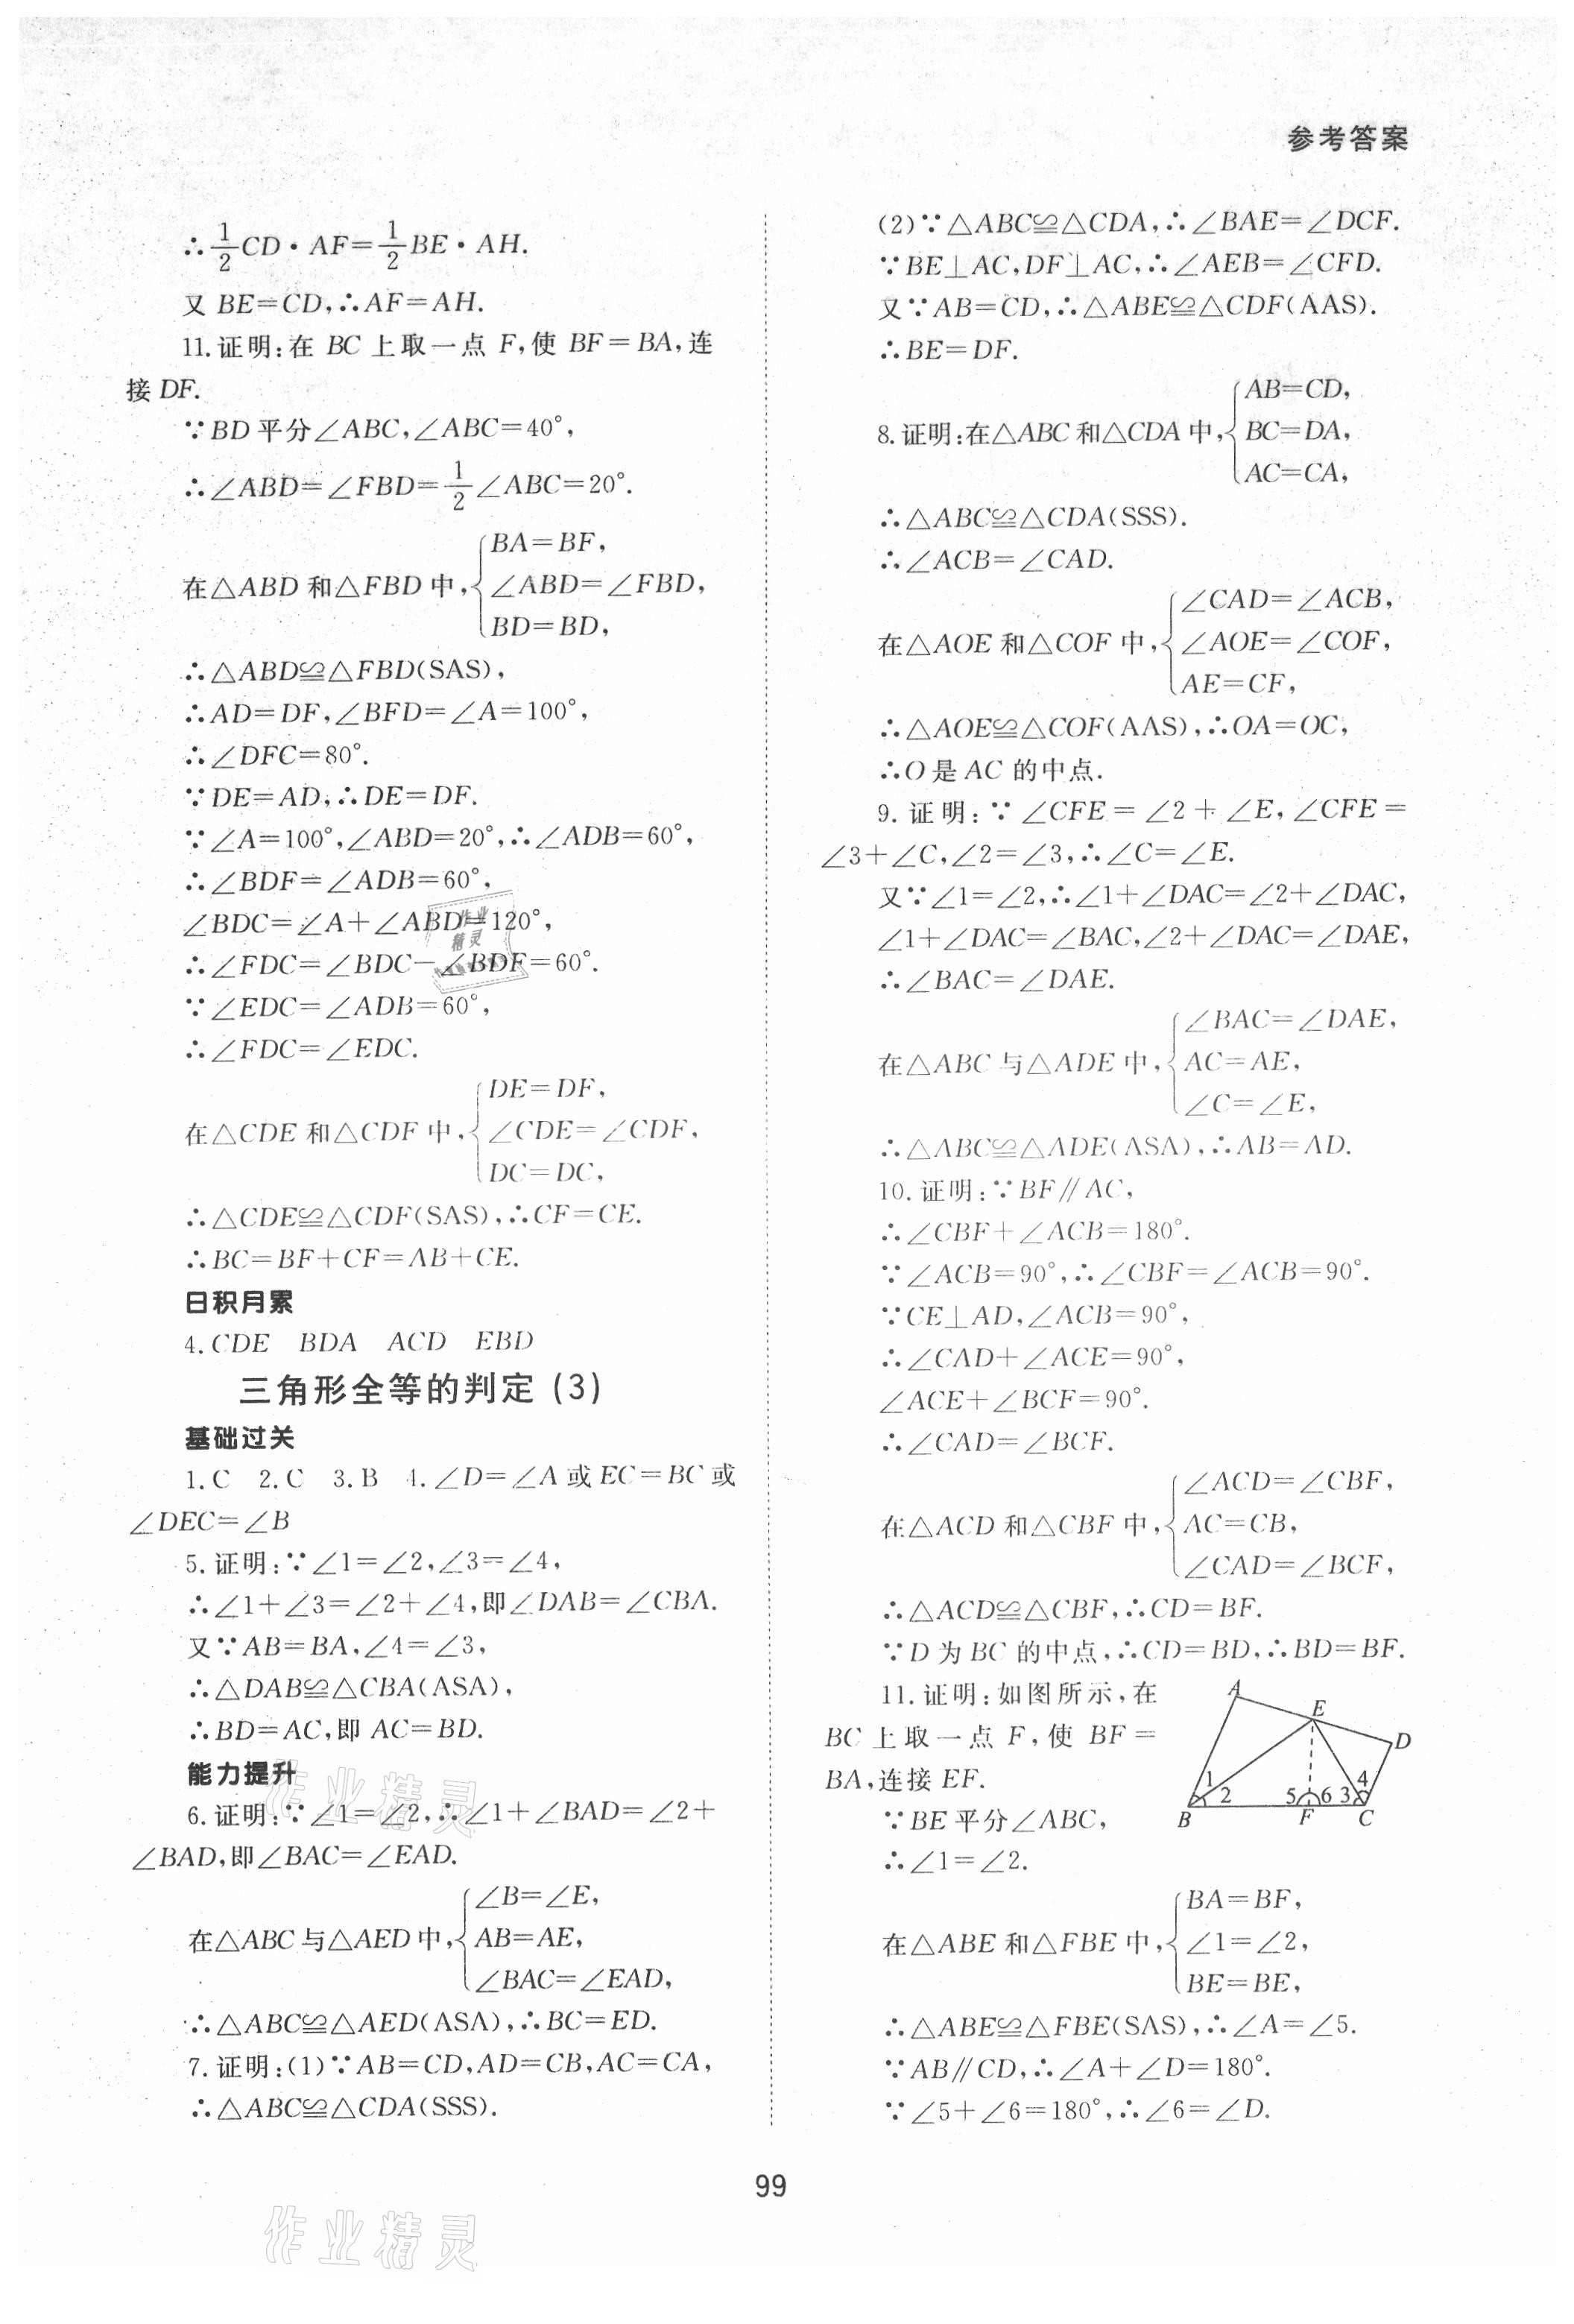 参考答案
∴1/2CD·AF=1/2BE·AH.
又 BE=CD,∴AF=AH.
11.证明:在 BC 上取一点 F,使 BF=BA,连
接 DF.
∵BD 平分∠ABC,∠ABC=40°,
∴∠ABD=∠FBD=1/2∠ABC=20°.
在△ABD 和△FBD 中,{BA=BF,
∠ABD=∠FBD,
BD=BD,
∴△ABD≌△FBD(SAS),
∴AD=DF,∠BFD=∠A=100°,
∴∠DFC=80°.
∵DE=AD,∴DE=DF.
∵∠A=100°,∠ABD=20°,∴∠ADB=60°,
∴∠BDF=∠ADB=60°,
∠BDC=∠A+∠ABD=120°,
∴∠FDC=∠BDC-∠BDF=60°.
∵∠EDC=∠ADB=60°,
∴∠FDC=∠EDC.
在△CDE 和△CDF 中,{DE=DF,
∠CDE=∠CDF,
DC=DC,
∴△CDE≌△CDF(SAS),∴CF=CE.
∴BC=BF+CF=AB+CE.
日积月累
4.CDE BDA ACD EBD
三角形全等的判定(3)
基础过关
1.C 2.C 3.B 4.∠D=∠A 或 EC=BC 或
∠DEC=∠B
5.证明:∵∠1=∠2,∠3=∠4,
∴∠1+∠3=∠2+∠4,即∠DAB=∠CBA.
又∵AB=BA,∠4=∠3,
∴△DAB≌△CBA(ASA),
∴BD=AC,即 AC=BD.
能力提升
6.证明:∵∠1=∠2,∴∠1+∠BAD=∠2+
∠BAD,即∠BAC=∠EAD.
在△ABC 与△AED 中,{∠B=∠E,
AB=AE,
∠BAC=∠EAD,
∴△ABC≌△AED(ASA),∴BC=ED.
7.证明:(1)∵AB=CD,AD=CB,AC=CA,
∴△ABC≌△CDA(SSS).
(2)∵△ABC≌△CDA,∴∠BAE=∠DCF.
∵BE⊥AC,DF⊥AC,∴∠AEB=∠CFD.
又∵AB=CD,∴△ABE≌△CDF(AAS).
∴BE=DF.
8.证明:在△ABC 和△CDA 中,{AB=CD,
BC=DA,
AC=CA,
∴△ABC≌△CDA(SSS).
∴∠ACB=∠CAD.
在△AOE 和△COF 中,{∠CAD=∠ACB,
∠AOE=∠COF,
AE=CF,
∴△AOE≌△COF(AAS),∴OA=OC,
∴O 是 AC 的中点.
9.证明:∵∠CFE=∠2+∠E,∠CFE=
∠3+∠C,∠2=∠3,∴∠C=∠E.
又∵∠1=∠2,∴∠1+∠DAC=∠2+∠DAC,
∠1+∠DAC=∠BAC,∠2+∠DAC=∠DAE,
∴∠BAC=∠DAE.
在△ABC 与△ADE 中,{∠BAC=∠DAE,
AC=AE,
∠C=∠E,
∴△ABC≌△ADE(ASA),∴AB=AD.
10.证明:∵BF∥AC,
∴∠CBF+∠ACB=180°.
∵∠ACB=90°,∴∠CBF=∠ACB=90°.
∵CE⊥AD,∠ACB=90°,
∴∠CAD+∠ACE=90°,
∠ACE+∠BCF=90°.
∴∠CAD=∠BCF.
在△ACD 和△CBF 中,{∠ACD=∠CBF,
AC=CB,
∠CAD=∠BCF,
∴△ACD≌△CBF,∴CD=BF.
∵D 为 BC 的中点,∴CD=BD,∴BD=BF.
11.证明:如图所示,在
BC 上取一点 F,使 BF=
BA,连接 EF.
A E D
1 2 5 6 3 4
B F C
∵BE 平分∠ABC,
∴∠1=∠2.
在△ABE 和△FBE 中,{BA=BF,
∠1=∠2,
BE=BE,
∴△ABE≌△FBE(SAS),∴∠A=∠5.
∵AB∥CD,∴∠A+∠D=180°.
∵∠5+∠6=180°,∴∠6=∠D.
99
作业精灵
作业精灵
作业
精灵